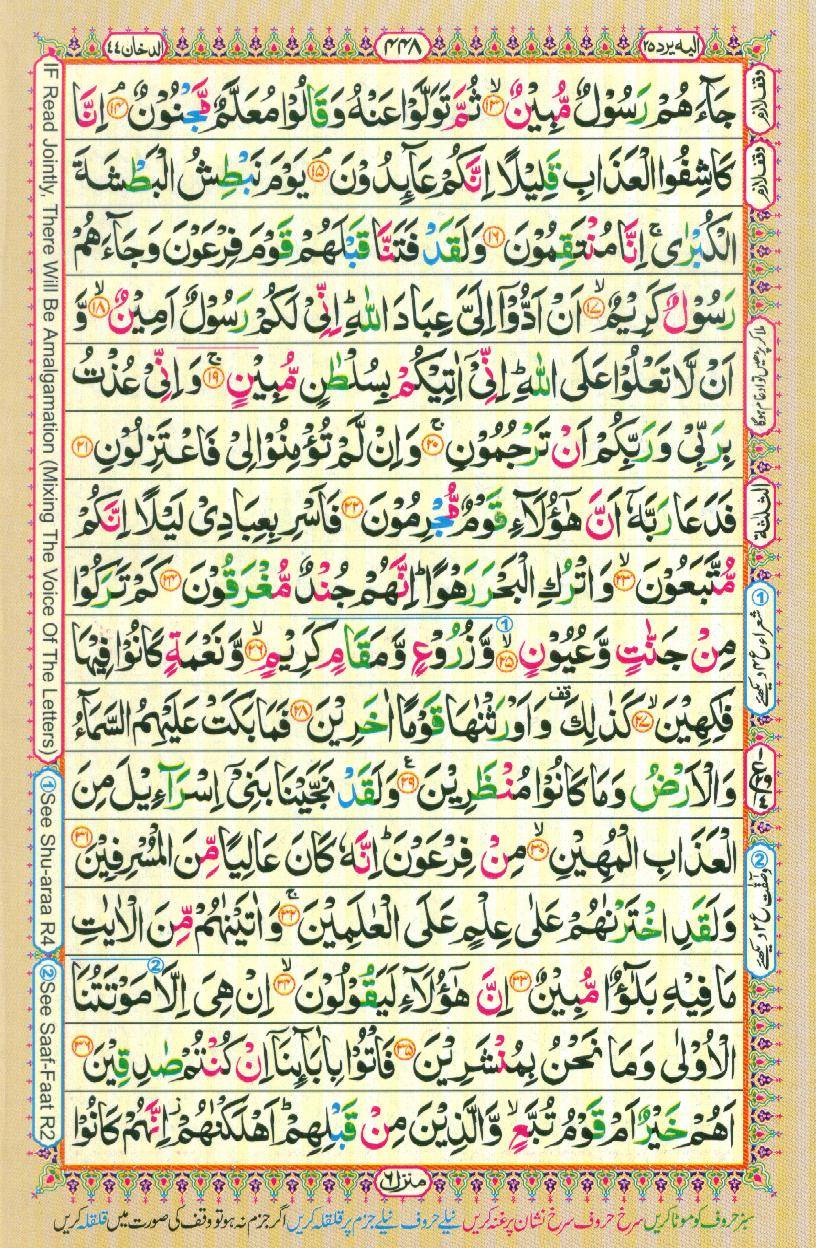 الدخان ٤٤
٤٤٨
الیه یرد ٢٥
جَآءَهُمْ رَسُوْلٌ مُّبِیْنٌ ۙ‏﴿۱۳﴾‏ ثُمَّ تَوَلَّوْا عَنْهُ وَ قَالُوْا مُعَلَّمٌ مَّجْنُوْنٌ ۘ‏﴿۱۴﴾‏ اِنَّا
كَاشِفُوا الْعَذَابِ قَلِیْلًا اِنَّكُمْ عَآىِٕدُوْنَ ۘ‏﴿۱۵﴾‏ یَوْمَ نَبْطِشُ الْبَطْشَةَ
الْكُبْرٰی ۚ اِنَّا مُنْتَقِمُوْنَ ‏﴿۱۶﴾‏ وَ لَقَدْ فَتَنَّا قَبْلَهُمْ قَوْمَ فِرْعَوْنَ وَ جَآءَهُمْ
رَسُوْلٌ كَرِیْمٌ ۙ‏﴿۱۷﴾‏ اَنْ اَدُّوْۤا اِلَیَّ عِبَادَ اللّٰهِ ؕ اِنِّیْ لَكُمْ رَسُوْلٌ اَمِیْنٌ ۙ‏﴿۱۸﴾‏ وَّ
اَنْ لَّا تَعْلُوْا عَلَی اللّٰهِ ؕ اِنِّیْۤ اٰتِیْكُمْ بِسُلْطٰنٍ مُّبِیْنٍ ۚ‏﴿۱۹﴾‏ وَ اِنِّیْ عُذْتُ
بِرَبِّیْ وَ رَبِّكُمْ اَنْ تَرْجُمُوْنِ ۚ‏﴿۲۰﴾‏ وَ اِنْ لَّمْ تُؤْمِنُوْا لِیْ فَاعْتَزِلُوْنِ ‏﴿۲۱﴾‏
فَدَعَا رَبَّهٗۤ اَنَّ هٰۤؤُلَآءِ قَوْمٌ مُّجْرِمُوْنَ ‏﴿۲۲﴾‏ فَاَسْرِ بِعِبَادِیْ لَیْلًا اِنَّكُمْ
مُّتَّبَعُوْنَ ۙ‏﴿۲۳﴾‏ وَ اتْرُكِ الْبَحْرَ رَهْوًا ؕ اِنَّهُمْ جُنْدٌ مُّغْرَقُوْنَ ‏﴿۲۴﴾‏ كَمْ تَرَكُوْا
مِنْ جَنّٰتٍ وَّ عُیُوْنٍ ۙ‏﴿۲۵﴾‏ ① وَّ زُرُوْعٍ وَّ مَقَامٍ كَرِیْمٍ ۙ‏﴿۲۶﴾‏ وَّ نَعْمَةٍ كَانُوْا فِیْهَا
فٰكِهِیْنَ ۙ‏﴿۲۷﴾‏ كَذٰلِكَ قف وَ اَوْرَثْنٰهَا قَوْمًا اٰخَرِیْنَ ‏﴿۲۸﴾‏ فَمَا بَكَتْ عَلَیْهِمُ السَّمَآءُ
وَ الْاَرْضُ وَ مَا كَانُوْا مُنْظَرِیْنَ ۧ‏﴿۲۹﴾‏ وَ لَقَدْ نَجَّیْنَا بَنِیْۤ اِسْرَآءِیْلَ مِنَ
الْعَذَابِ الْمُهِیْنِ ۙ‏﴿۳۰﴾‏ مِنْ فِرْعَوْنَ ؕ اِنَّهٗ كَانَ عَالِیًا مِّنَ الْمُسْرِفِیْنَ ‏﴿۳۱﴾‏
وَ لَقَدِ اخْتَرْنٰهُمْ عَلٰی عِلْمٍ عَلَی الْعٰلَمِیْنَ ۚ‏﴿۳۲﴾‏ وَ اٰتَیْنٰهُمْ مِّنَ الْاٰیٰتِ
مَا فِیْهِ بَلٰٓؤٌا مُّبِیْنٌ ‏﴿۳۳﴾‏ اِنَّ هٰۤؤُلَآءِ لَیَقُوْلُوْنَ ۙ‏﴿۳۴﴾‏ اِنْ هِیَ اِلَّا ② مَوْتَتُنَا
الْاُوْلٰی وَ مَا نَحْنُ بِمُنْشَرِیْنَ ‏﴿۳۵﴾‏ فَاْتُوْا بِاٰبَآىِٕنَاۤ اِنْ كُنْتُمْ صٰدِقِیْنَ ‏﴿۳۶﴾‏
اَهُمْ خَیْرٌ اَمْ قَوْمُ تُبَّعٍ ۙ وَّ الَّذِیْنَ مِنْ قَبْلِهِمْ ؕ اَهْلَكْنٰهُمْ ؗ اِنَّهُمْ كَانُوْا
وقف لازم
وقف لازم
ملا کر پڑھیں تو ادغام ہوگا
الثلثة
① شعراء ع ٤ دیکھئے
② وصٰفّٰت ع ٢ دیکھئے
IF Read Jointly, There Will Be Amalgamation (Mixing The Voice Of The Letters)
① See Shu-araa R4
② See Saaf-Faat R2
منزل ٦
سبز حروف کو موٹا کریں سرخ حروف سرخ نشان پر غنہ کریں نیلے حروف نیلے جزم پر قلقلہ کریں اگر جزم نہ ہو تو وقف کی صورت میں قلقلہ کریں